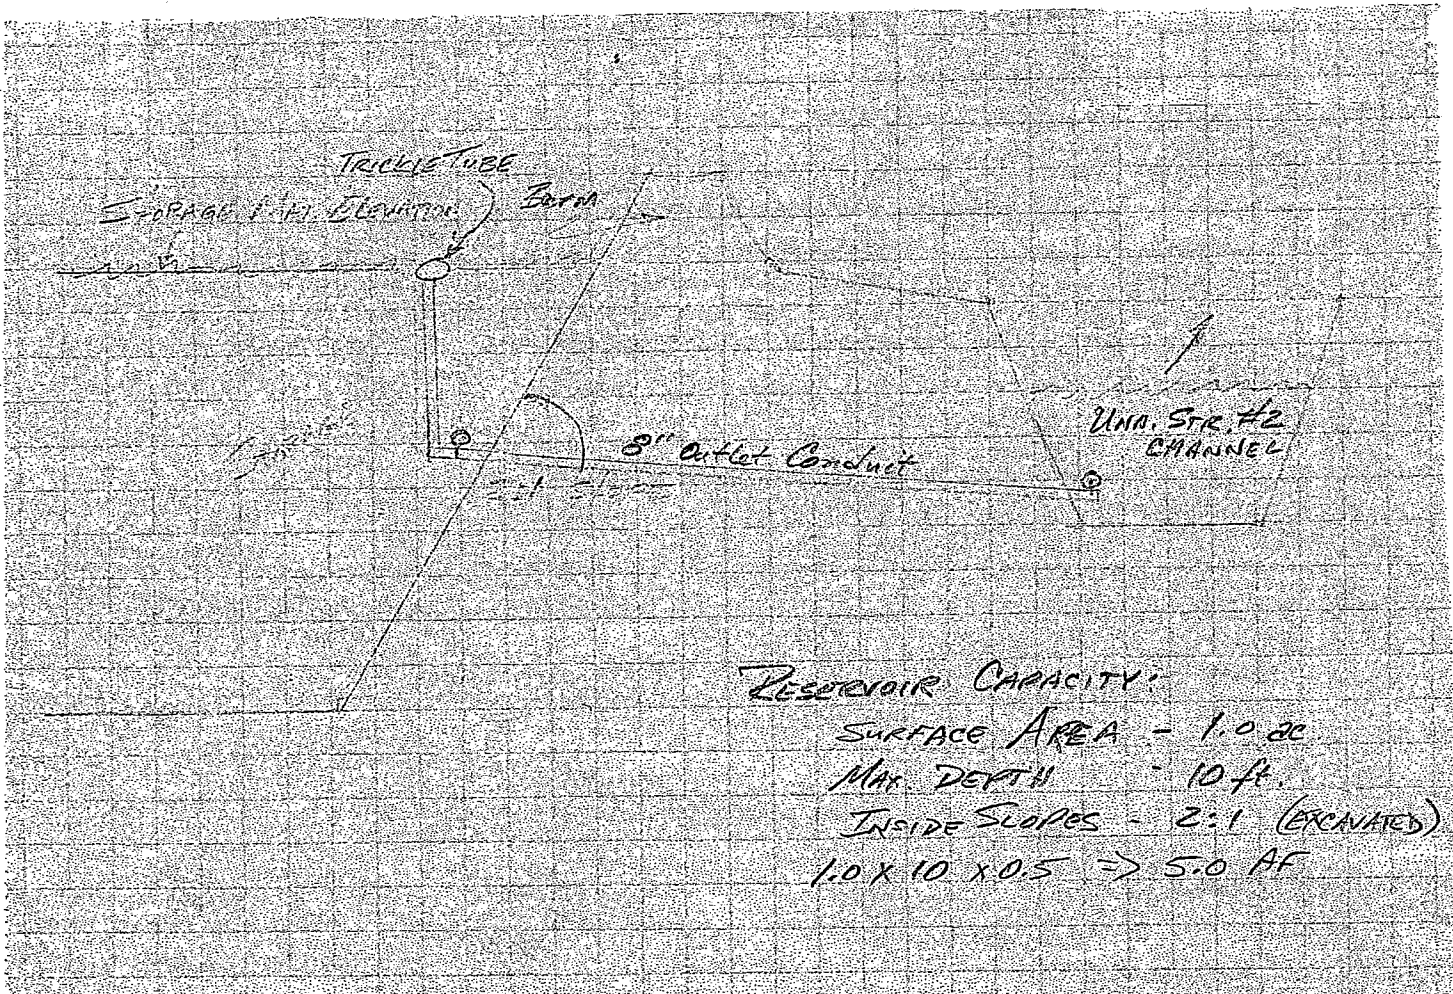 TRICKLE TUBE
STORAGE ELEVATION
BERM
8" Outlet Conduit
2:1 SLOPE
UNN. STR. #2
CHANNEL
RESERVOIR CAPACITY:
SURFACE AREA - 1.0 ac.
MAX. DEPTH - 10 ft.
INSIDE SLOPES - 2:1 (EXCAVATED)
1.0 X 10 X 0.5 => 5.0 AF